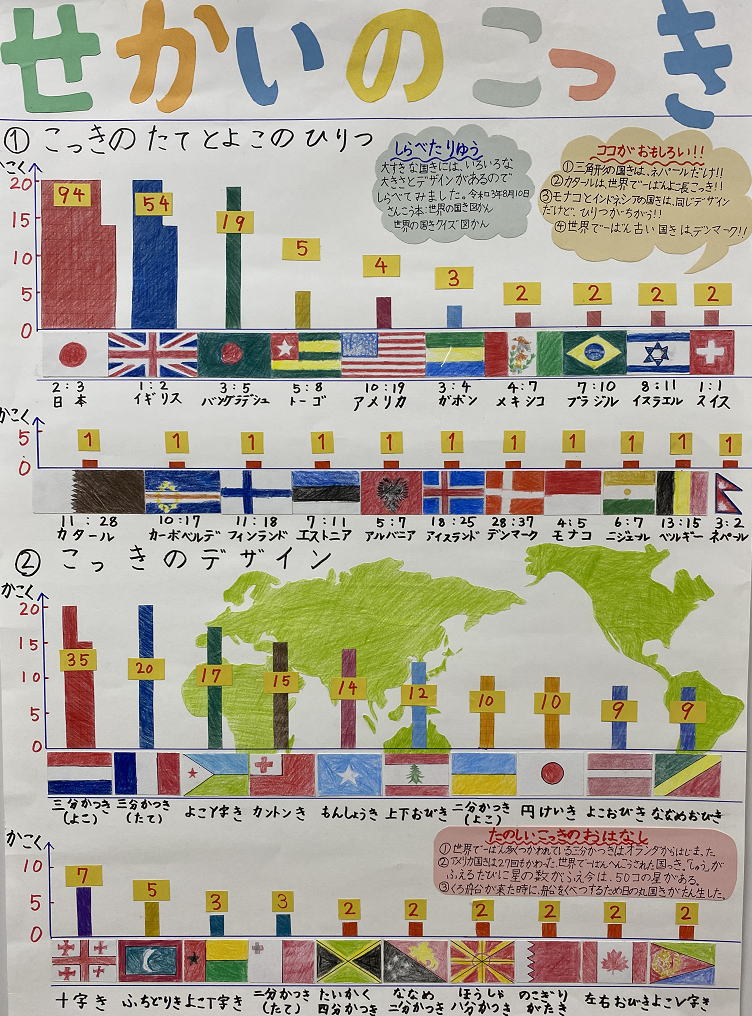 せかいのこっき
① こっきの たてと よこの ひりつ
しらべたりゆう
大すきな国きには、いろいろな
大きさとデザインがあるので
しらべてみました。令和3年8月10日
さんこう本:世界の国き図かん
世界の国きクイズ図かん
ココがおもしろい!!
①三角形の国きは、ネパールだけ!!
②カタールは、世界で一ばんよこ長こっき!!
③モナコとインドネシアの国きは、同じデザイン
だけど、ひりつがちがう!!
④世界で一ばん古い国きは、デンマーク!!
かこく
20
15
10
5
0
94 54 19 5 4 3 2 2 2 2
2:3 1:2 3:5 5:8 10:19 3:4 4:7 7:10 8:11 1:1
日本 イギリス バングラデシュ トーゴ アメリカ ガボン メキシコ ブラジル イスラエル スイス
かこく
5
0
1 1 1 1 1 1 1 1 1 1 1
11:28 10:17 11:18 7:11 5:7 18:25 28:37 4:5 6:7 13:15 3:2
カタール カーボベルデ フィンランド エストニア アルバニア アイスランド デンマーク モナコ ニジェール ベルギー ネパール
② こっきのデザイン
かこく
20
15
10
5
0
35 20 17 15 14 12 10 10 9 9
三分かつき(よこ) 三分かつき(たて) よこY字き カントンき もんしょうき 上下おびき 二分かつき(よこ) 円けいき よこおびき ななめおびき
たのしいこっきのおはなし
①世界で一ばん多くつかわれている三分かつきはオランダからはじまった。
②アメリカ国きは27回もかわった世界で一ばんへんこうされた国っき。しゅうが
ふえるたびに星の数がふえ今は、50コの星がある。
③くろ舟台が来た時に、舟台をくべつするため日の丸国きがたん生した。
かこく
10
5
0
7 5 3 3 2 2 2 2 2 2
十字き ふちどりき よこT字き 二分かつき(たて) たいかく四分かつき ななめ二分かつき ほうしゃ八分かつき のこぎりがたき 左右おびき よこV字き